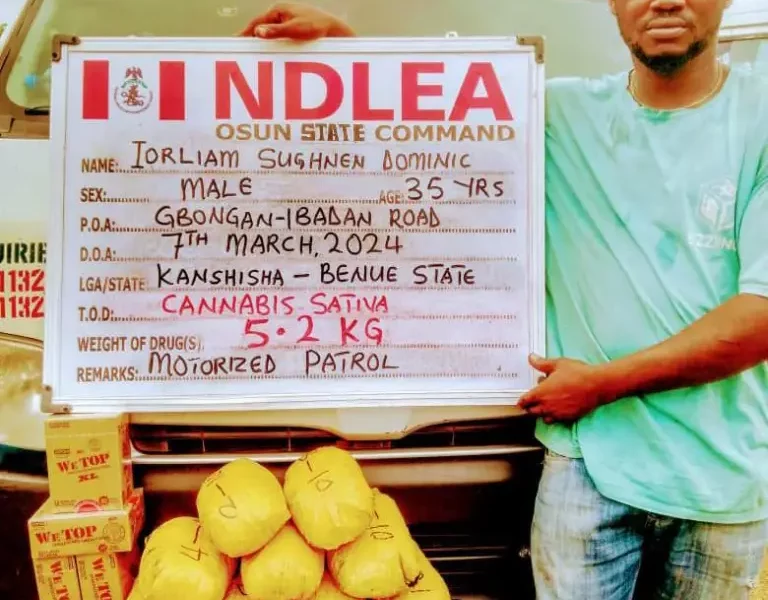 NDLEA
OSUN STATE COMMAND
NAME: IORLIAM SUGHNEN DOMINIC
SEX: MALE AGE: 35 YRS
P.O.A: GBONGAN-IBADAN ROAD
D.O.A: 7TH MARCH, 2024
LGA/STATE KANSHISHA - BENUE STATE
T.O.D: CANNABIS SATIVA
WEIGHT OF DRUG(S) 5.2 KG
REMARKS: MOTORIZED PATROL
UIRIE
1132
1132
WE TOP
XL
WE TOP
WE TOP
WE TOP
10
10
4